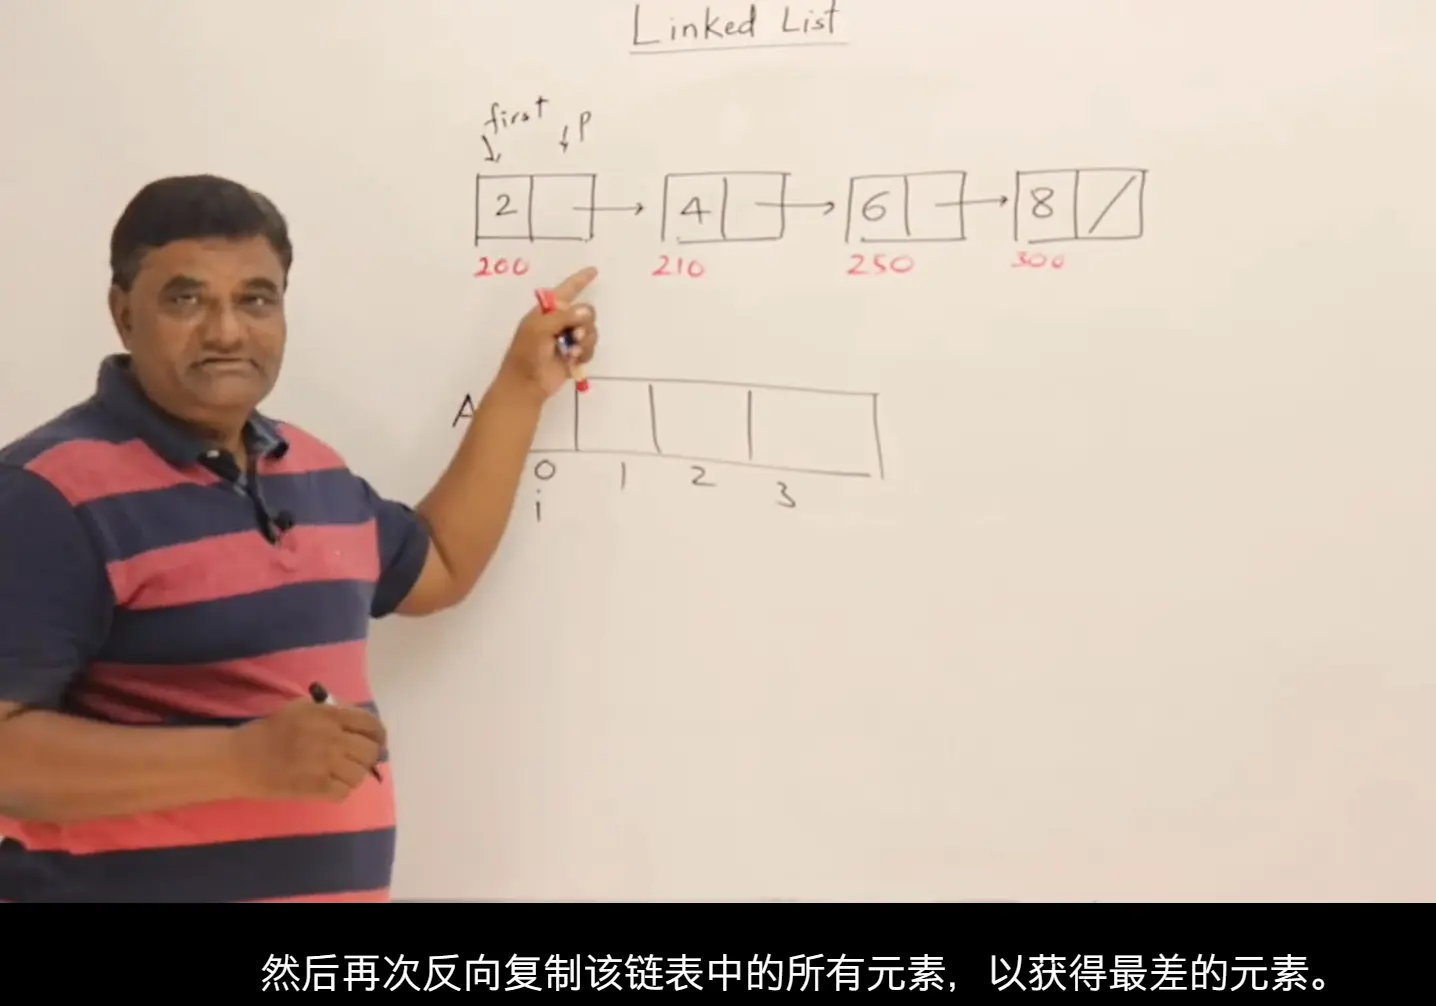 Linked List
first
P
2
4
6
8
200
210
250
300
A
0
1
2
3
i
然后再次反向复制该链表中的所有元素，以获得最差的元素。